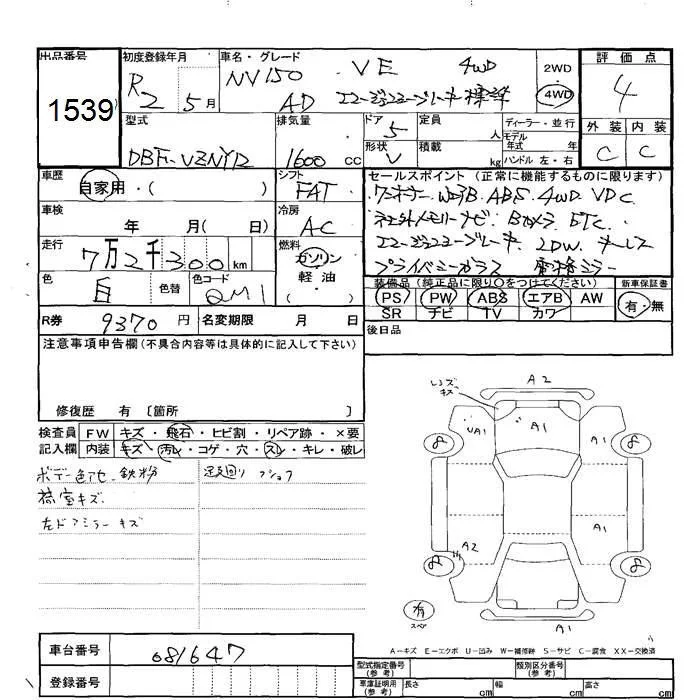 出品番号 初度登録年月 車名・グレード 評価点
1539
R2 5月
NV150 VE 4WD
AD エマージェンシーブレーキ 標準
2WD
4WD
4
外装 内装
C C
型式 排気量 ドア 定員 ディーラー・並行
DBF-VZNY12 1600 cc 5 人
モデル年式 年
形状 積載 ハンドル 左・右
V kg
車歴 シフト セールスポイント (正常に機能するものに限ります)
自家用・( ) FAT
ワンオーナー WエアB. ABS. 4WD. VDC.
車検 冷房
年 月( 日) AC
社外メモリーナビ. Bカメラ. ETC.
走行 燃料
7万2千300km ガソリン
軽・油
エマージェンシーブレーキ. LDW. キーレス
プライバシーガラス 電格ミラー
色 色替 色コード
白 QM1 ( )
装備品 (純正品に限り○をつけてください) 新車保証書
PS PW ABS エアB AW 有・無
SR ナビ TV カワ
R券 9370円 名変期限 月 日
後日品
注意事項申告欄(不具合内容等は具体的に記入して下さい)
修復歴 有 〔箇所 〕
検査員 FW キズ・飛石・ヒビ割・リペア跡・×要
記入欄 内装 キズ・汚レ・コゲ・穴・スレ・キレ・破レ
ボデー色アセ. 鉄粉
足廻り フショク
荷室キズ.
左ドアミラーキズ
レンズキズ
A2
UA1 A1 A1
8 8
A2 A1
8 8
有
スペア
A1
A-キズ E-エクボ U-凹み W-補修跡 S-サビ C-腐食 XX-交換済
車台番号 081647
登録番号
型式指定番号(参考) 類別区分番号(参考)
車庫証明用(参考) 長さ cm 幅 cm 高さ cm